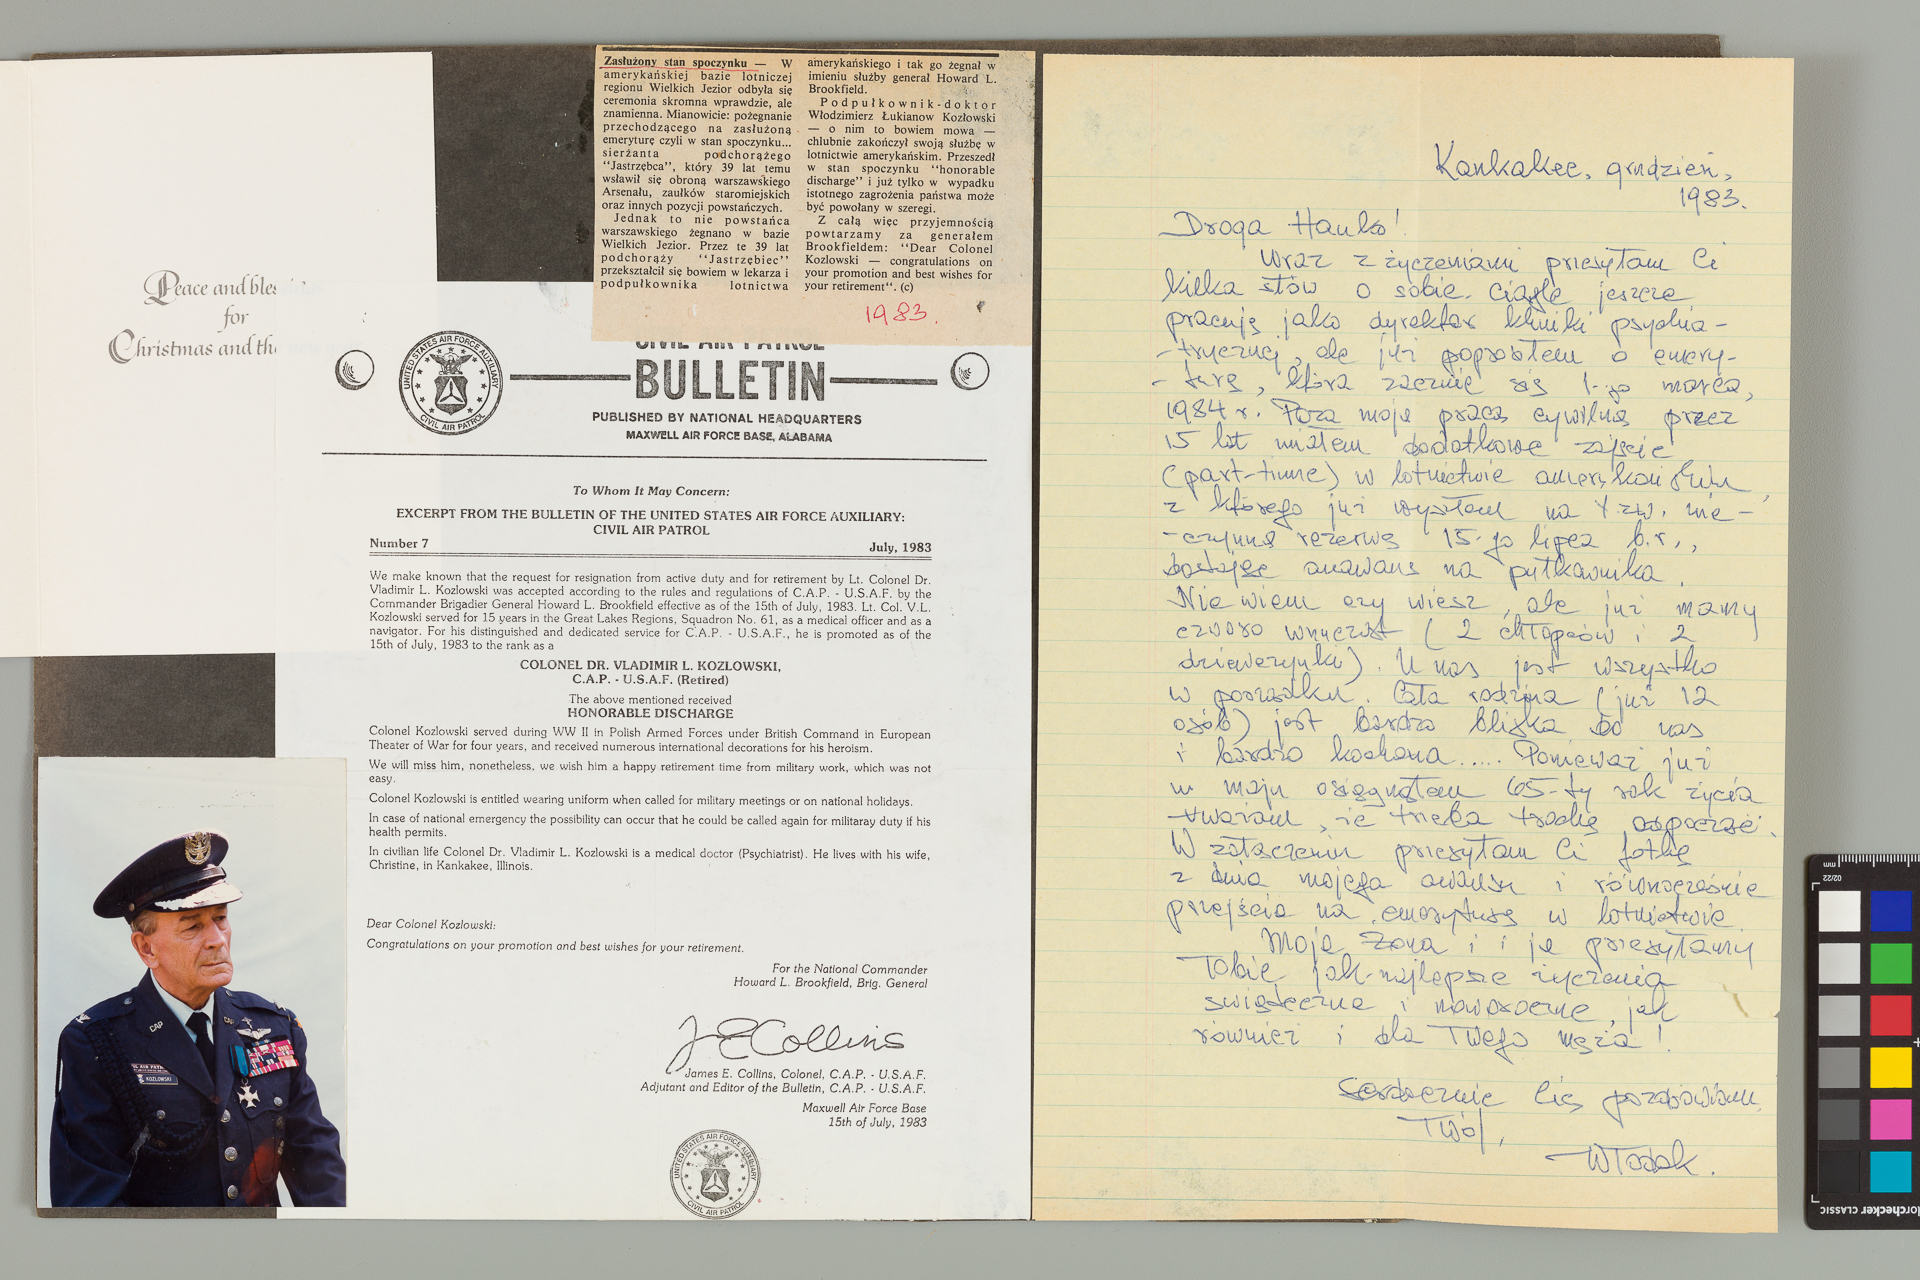 Peace and bles
for
Christmas and the new year
Zasłużony stan spoczynku — W
amerykańskiej bazie lotniczej
regionu Wielkich Jezior odbyła się
ceremonia skromna wprawdzie, ale
znamienna. Mianowicie: pożegnanie
przechodzącego na zasłużoną
emeryturę czyli w stan spoczynku...
sierżanta podchorążego
"Jastrzębca", który 39 lat temu
wsławił się obroną warszawskiego
Arsenału, zaułków staromiejskich
oraz innych pozycji powstańczych.
Jednak to nie powstańca
warszawskiego żegnano w bazie
Wielkich Jezior. Przez te 39 lat
podchorąży "Jastrzębiec"
przekształcił się bowiem w lekarza i
podpułkownika lotnictwa
amerykańskiego i tak go żegnał w
imieniu służby generał Howard L.
Brookfield.
Podpułkownik-doktor
Włodzimierz Łukianow Kozłowski
— o nim to bowiem mowa —
chlubnie zakończył swoją służbę w
lotnictwie amerykańskim. Przeszedł
w stan spoczynku "honorable
discharge" i już tylko w wypadku
istotnego zagrożenia państwa może
być powołany w szeregi.
Z całą więc przyjemnością
powtarzamy za generałem
Brookfieldem: "Dear Colonel
Kozlowski — congratulations on
your promotion and best wishes for
your retirement". (c)
1983.
CIVIL AIR PATROL
BULLETIN
PUBLISHED BY NATIONAL HEADQUARTERS
MAXWELL AIR FORCE BASE, ALABAMA
UNITED STATES AIR FORCE AUXILIARY
CIVIL AIR PATROL
To Whom It May Concern:
EXCERPT FROM THE BULLETIN OF THE UNITED STATES AIR FORCE AUXILIARY:
CIVIL AIR PATROL
Number 7 July, 1983
We make known that the request for resignation from active duty and for retirement by Lt. Colonel Dr.
Vladimir L. Kozlowski was accepted according to the rules and regulations of C.A.P. - U.S.A.F. by the
Commander Brigadier General Howard L. Brookfield effective as of the 15th of July, 1983. Lt. Col. V.L.
Kozlowski served for 15 years in the Great Lakes Regions, Squadron No. 61, as a medical officer and as a
navigator. For his distinguished and dedicated service for C.A.P. - U.S.A.F., he is promoted as of the
15th of July, 1983 to the rank as a
COLONEL DR. VLADIMIR L. KOZLOWSKI,
C.A.P. - U.S.A.F. (Retired)
The above mentioned received
HONORABLE DISCHARGE
Colonel Kozlowski served during WW II in Polish Armed Forces under British Command in European
Theater of War for four years, and received numerous international decorations for his heroism.
We will miss him, nonetheless, we wish him a happy retirement time from military work, which was not
easy.
Colonel Kozlowski is entitled wearing uniform when called for military meetings or on national holidays.
In case of national emergency the possibility can occur that he could be called again for militaray duty if his
health permits.
In civilian life Colonel Dr. Vladimir L. Kozlowski is a medical doctor (Psychiatrist). He lives with his wife,
Christine, in Kankakee, Illinois.
Dear Colonel Kozlowski:
Congratulations on your promotion and best wishes for your retirement.
For the National Commander
Howard L. Brookfield, Brig. General
J E Collins
James E. Collins, Colonel, C.A.P. - U.S.A.F.
Adjutant and Editor of the Bulletin, C.A.P. - U.S.A.F.
Maxwell Air Force Base
15th of July, 1983
UNITED STATES AIR FORCE AUXILIARY
CIVIL AIR PATROL
CAP
CAP
KOZLOWSKI
Kankakee, grudzień,
1983.
Droga Hanko!
Wraz z życzeniami przesyłam Ci
kilka słów o sobie. Ciągle jeszcze
pracuję jako dyrektor kliniki psychia-
-trycznej, ale już poprosiłem o emery-
-turę, która zacznie się 1-go marca,
1984 r. Poza moją pracą cywilną przez
15 lat miałem dodatkowe zajęcie
(part-time) w lotnictwie amerykańskim,
z którego już wyszłem na t.zw. nie-
-czynną rezerwę 15-go lipca b.r.,
dostając awans na pułkownika.
Nie wiem czy wiesz, ale już mamy
czworo wnucząt (2 chłopców i 2
dziewczynki). U nas jest wszystko
w porządku. Cała rodzina (już 12
osób) jest bardzo bliska do nas
i bardzo kochana..... Ponieważ już
w maju osiągnąłem 65-ty rok życia
uważam, że trzeba trochę odpocząć.
W załączeniu przesyłam Ci fotkę
z dnia mojego awansu i równocześnie
przejścia na emeryturę w lotnictwie.
Moja żona i i ja przesyłamy
Tobie jak-najlepsze życzenia
świąteczne i noworoczne, jak
również i dla Twego męża!
Serdecznie Cię pozdrawiam,
Twój,
Włodek.
02/22
mm
colorchecker CLASSIC